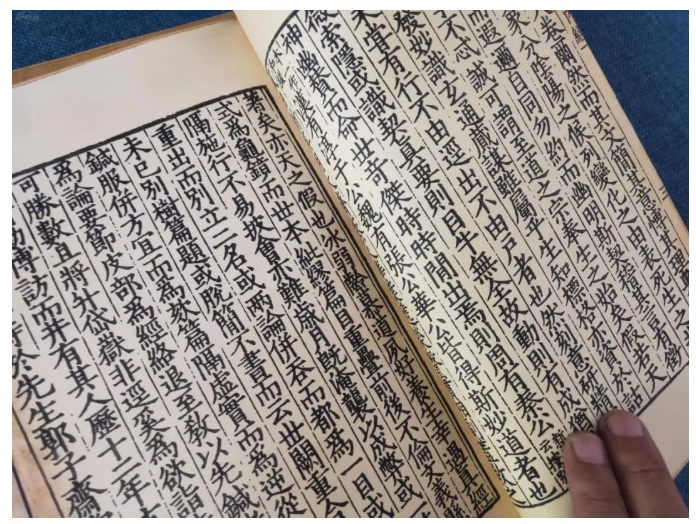 爾然而其文簡其意博其理
象分陰陽之候列變化之由表死生之
而遐邇自同勿約而幽明斯契稽其言有徵
不忒誠可謂至道之宗奉生之始矣假若天
發妙識玄通蕆謀雖屬乎生知標格亦資於詁
嘗有行不由逕出不由戶者也然刻意研精
微索隱或識契真要則目牛無全故動則有成猶
神幽贊而命世奇傑時時間出焉則周有秦公
漢有淳于公魏有張公華公皆得斯妙道者也
著矣亦天之假也冰弱齡慕道夙好養生幸遇真經
式為龜鏡而世本紕繆篇目重疊前後不倫文義懸
隔施行不易披會亦難歲月既淹襲以成弊或
重出而別立二名或兩論併吞而都為一目或
未已別樹篇題或脫簡不書而云世闕重合
鍼服併方宜而為欬篇隔虛實而為逆從
為論要節皮部為經絡退至教以先鍼
可勝數且將升岱嶽非逕奚為欲詣
勤博訪而并有其人歷十二年
時於先生郭子齋